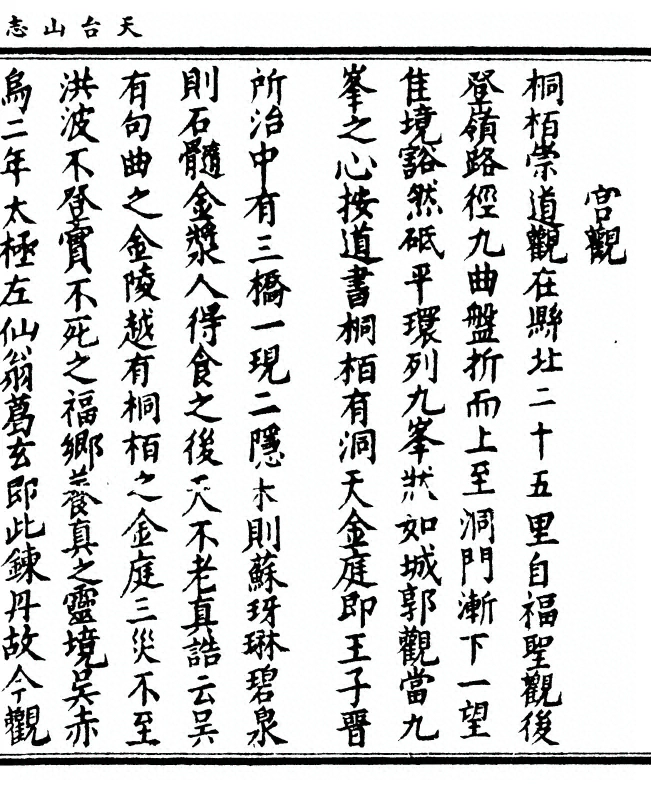 天台山志
宮觀
桐栢崇道觀在縣北二十五里自福聖觀後
登嶺路徑九曲盤折而上至洞門漸下一望
佳境豁然砥平環列九峯狀如城郭觀當九
峯之心按道書桐栢有洞天金庭即王子晋
所治中有三橋一現二隱木則蘇玡琳碧泉
則石髓金漿人得食之後天不老真誥云吴
有句曲之金陵越有桐栢之金庭三災不至
洪波不登實不死之福鄉養真之靈境吴赤
烏二年太極左仙翁葛玄即此鍊丹故今觀